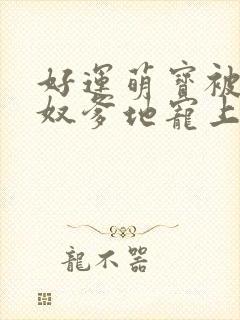 好運萌寶被
奴爹地寵上
龍不器